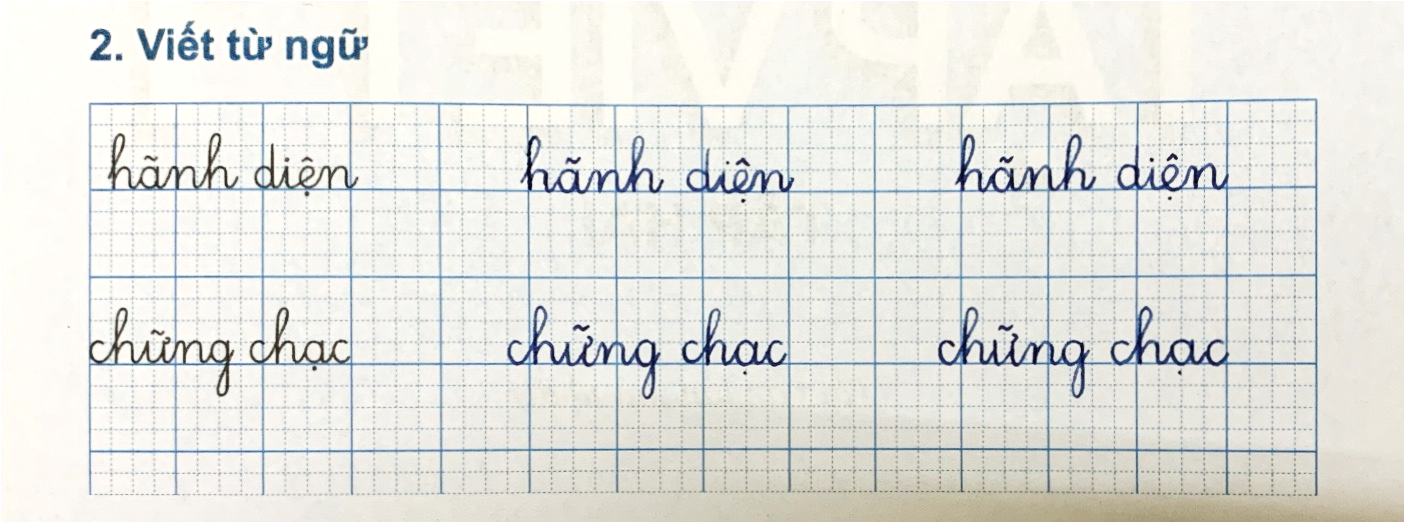 2. Viết từ ngữ
hãnh diện hãnh diện hãnh diện
chững chạc chững chạc chững chạc